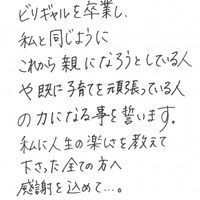 ビリギャルを卒業し、
私と同じように
これから親になろうとしている人
や既に子育てを頑張っている人
の力になる事を誓います。
私に人生の楽しさを教えて
下さった全ての方へ
感謝を込めて…。